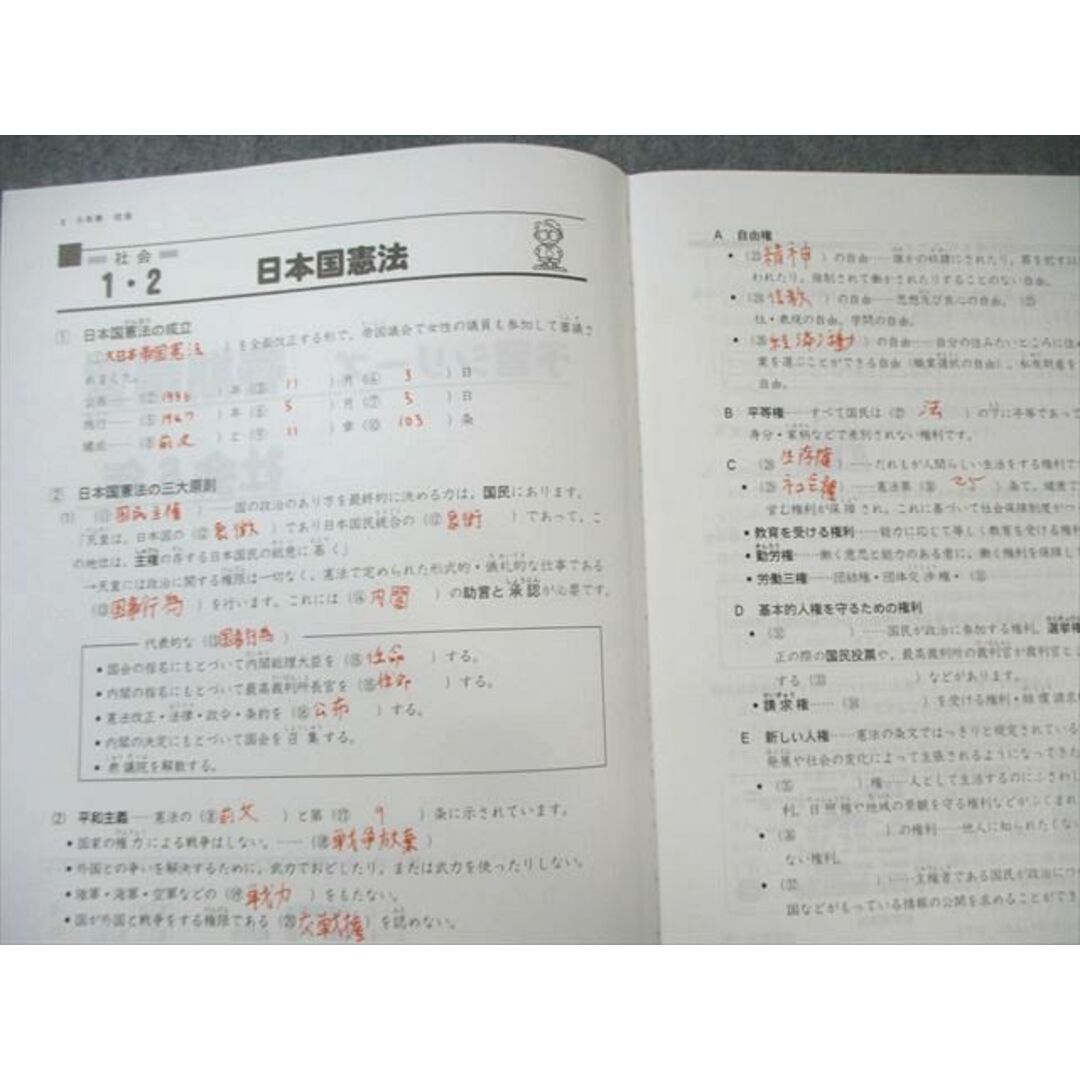 2 6年上 社会
社会
1・2
日本国憲法
① 日本国憲法の成立
(①大日本帝国憲法)を全面改正する形で、帝国議会で女性の議員も参加して審議さ
れました。
公布……(②1946)年(③ 11 )月(④ 3 )日
施行……(⑤1947)年(⑥ 5 )月(⑦ 3 )日
構成……(⑧前文)と(⑨ 11 )章(⑩ 103 )条
② 日本国憲法の三大原則
(1) (⑪国民主権)……国の政治のあり方を最終的に決める力は、国民にあります。
「天皇は、日本国の(⑫象徴)であり日本国民統合の(⑫象徴)であって、こ
の地位は、主権の存する日本国民の総意に基く」
→天皇には政治に関する権限は一切なく、憲法で定められた形式的・儀礼的な仕事である
(⑬国事行為)を行います。これには(⑭内閣)の助言と承認が必要です。
代表的な(⑬国事行為)
• 国会の指名にもとづいて内閣総理大臣を(⑮任命)する。
• 内閣の指名にもとづいて最高裁判所長官を(⑮任命)する。
• 憲法改正・法律・政令・条約を(⑯公布)する。
• 内閣の決定にもとづいて国会を召集する。
• 衆議院を解散する。
② 平和主義……憲法の(⑧前文)と第(⑰ 9 )条に示されています。
• 国家の権力による戦争はしない。……(⑱戦争放棄)
• 外国との争いを解決するために、武力でおどしたり、または武力を使ったりしない。
• 陸軍・海軍・空軍などの(⑲戦力)をもたない。
• 国が外国と戦争をする権限である(⑳交戦権)を認めない。
A 自由権
• (㉓精神)の自由……誰かの奴隷にされたり、罪を犯す以
われたり、強制されて働かされたりすることのない自由。
• (㉔信教)の自由……思想及び良心の自由、(㉕
社・表現の自由、学問の自由。
• (㉖経済活動)の自由……自分の住みたいところに住
業を選ぶことができる自由(職業選択の自由)、私有財産を
自由。
B 平等権……すべて国民は(㉗ 法 )の下に平等であって
身分・家柄などで差別されない権利です。
C (㉘生存権)……だれもが人間らしい生活をする権利で
• (㉙社会権)……憲法第(㉚ 25 )条で、健康で
営む権利が保障され、これに基づいて社会保障制度がつ
• 教育を受ける権利……能力に応じて等しく教育を受ける権利
• 勤労権……働く意思と能力のある者に、働く権利を保障し
• 労働三権……団結権・団体交渉権・(㉛
D 基本的人権を守るための権利
• (㉜ )……国民が政治に参加する権利。選挙権
正の際の国民投票や、最高裁判所の裁判官が裁判官と
する(㉝ )などがあります。
• 請求権……(㉞ )を受ける権利・賠償請求
E 新しい人権……憲法の条文ではっきりと規定されている
発展や社会の変化によって主張されるようになってきた
• (㉟ )権……人として生活するのにふさわし
利。日照権や地域の景観を守る権利などがふくまれ
• (㊱ )の権利……他人に知られたくない
ない権利。
• (㊲ )……主権者である国民が政治につ
国などがもっている情報の公開を求めることができ